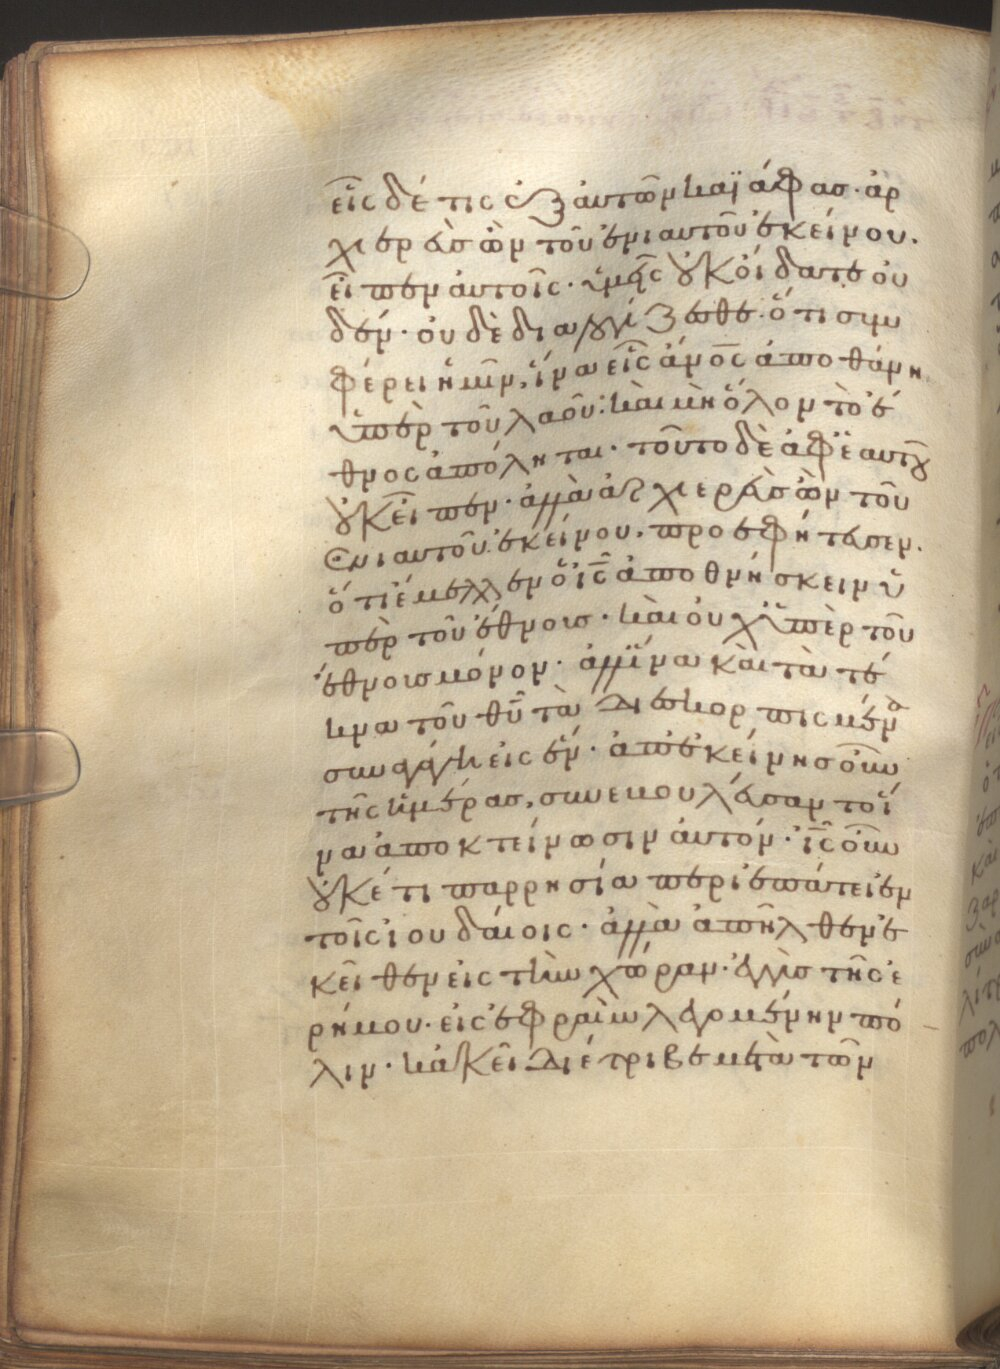 εἷς δέ τις ἐξ αὐτῶν καϊάφας· ἀρ
χιερεὺς ὢν τοῦ ἐνιαυτοῦ ἐκείνου.
εἶπεν αὐτοῖς· ὑμεῖς οὐκ οἴδατε οὐ
δέν· οὐδὲ διαλογίζεσθε· ὅτι συμ
φέρει ἡμῖν, ἵνα εἷς ἄνος ἀποθάνη
ὑπὲρ τοῦ λαοῦ: καὶ μὴ ὅλον τὸ ἔ
θνος ἀπόληται· τοῦτο δὲ ἀφ' ἑαυτοῦ
οὐκ εἶπεν· ἀλλὰ ἀρχιερεὺς ὢν τοῦ
ἐνιαυτοῦ ἐκείνου. προεφήτευσεν.
ὅτι ἔμελλεν ὁ ἰς ἀποθνήσκειν ὑ
πὲρ τοῦ ἔθνους· καὶ οὐχ ὑπὲρ τοῦ
ἔθνους μόνον· ἀλλ' ἵνα καὶ τὰ τέ
κνα τοῦ θυ τὰ διεσκορπισμένα
συναγάγη εἰς ἕν· ἀπ' ἐκείνης οὖν
τῆς ἡμέρας, συνεβουλεύσαντο ἵ
να ἀποκτείνωσιν αὐτόν· ἰς οὖν
οὐκέτι παρρησία περιεπάτει ἐν
τοῖς ἰουδαίοις· ἀλλὰ ἀπῆλθεν ἐ
κεῖθεν εἰς τὴν χώραν· ἐγγὺς τῆς ἐ
ρήμου· εἰς ἐφραὶμ λεγομένην πό
λιν· κἀκεῖ διέτριβε μετὰ τῶν